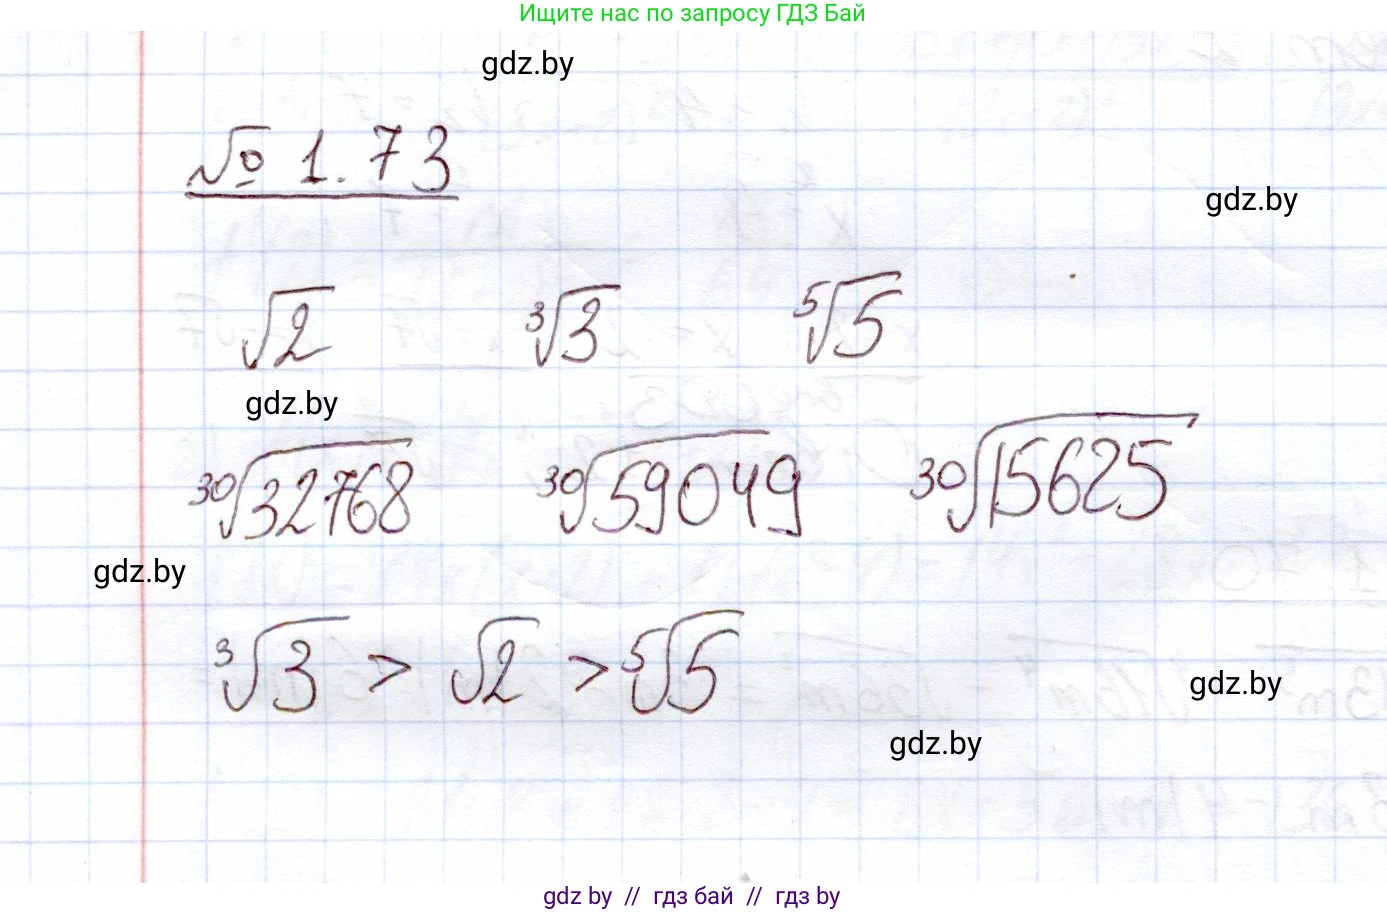 Ищите нас по запросу ГДЗ Бай
gdz.by
№ 1.73
gdz.by
√2 ³√3 ⁵√5
gdz.by
³⁰√32768 ³⁰√59049 ³⁰√15625
gdz.by
³√3 > √2 > ⁵√5
gdz.by
gdz.by
gdz by // гдз бай // гдз by